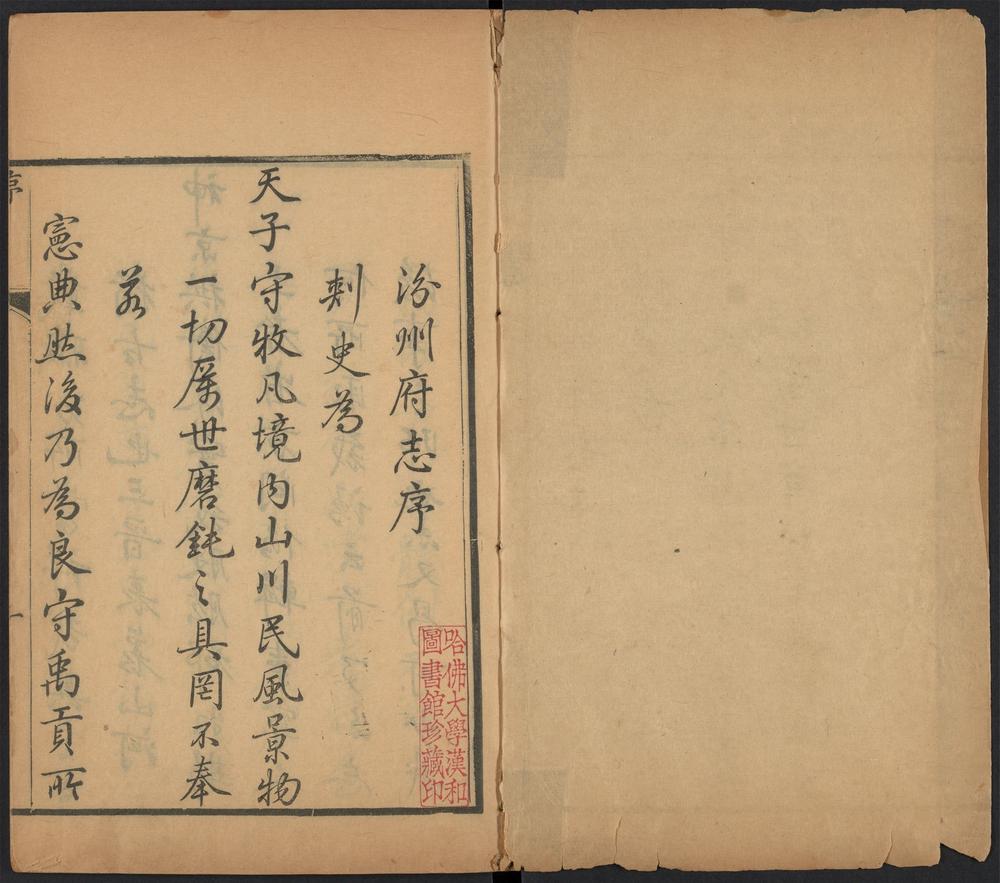 汾州府志序
刺史為
天子守牧凡境內山川民風景物
一切厲世磨鈍之具罔不奉
若
憲典然後乃為良守禹貢所
序
一
哈佛大學漢和
圖書館珍藏印